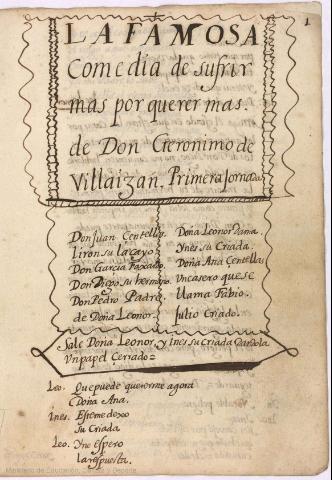 1
LA FAMOSA
Comedia de sufrir
mas por querer mas.
de Don Geronimo de
Villaizan. Primera Jornada
Don Juan Centellas
Liron su lacayo
Don Garcia
Don Diego su hermano
Don Pedro Padre
de Doña Leonor.
Doña Leonor Dama
Ynes su Criada.
Doña Ana Centellas
Un casero que se
llama Fabio.
Julio Criado.
Sale Doña Leonor, y Ines su Criada dandola
Un papel Cerrado=
Leo. Que puede quererme agora
Doña Ana.
Ines. Esto me dexo
su Criada
Leo. Y no espero
la respuesta.
Ministerio de Educación, Cultura y Deporte